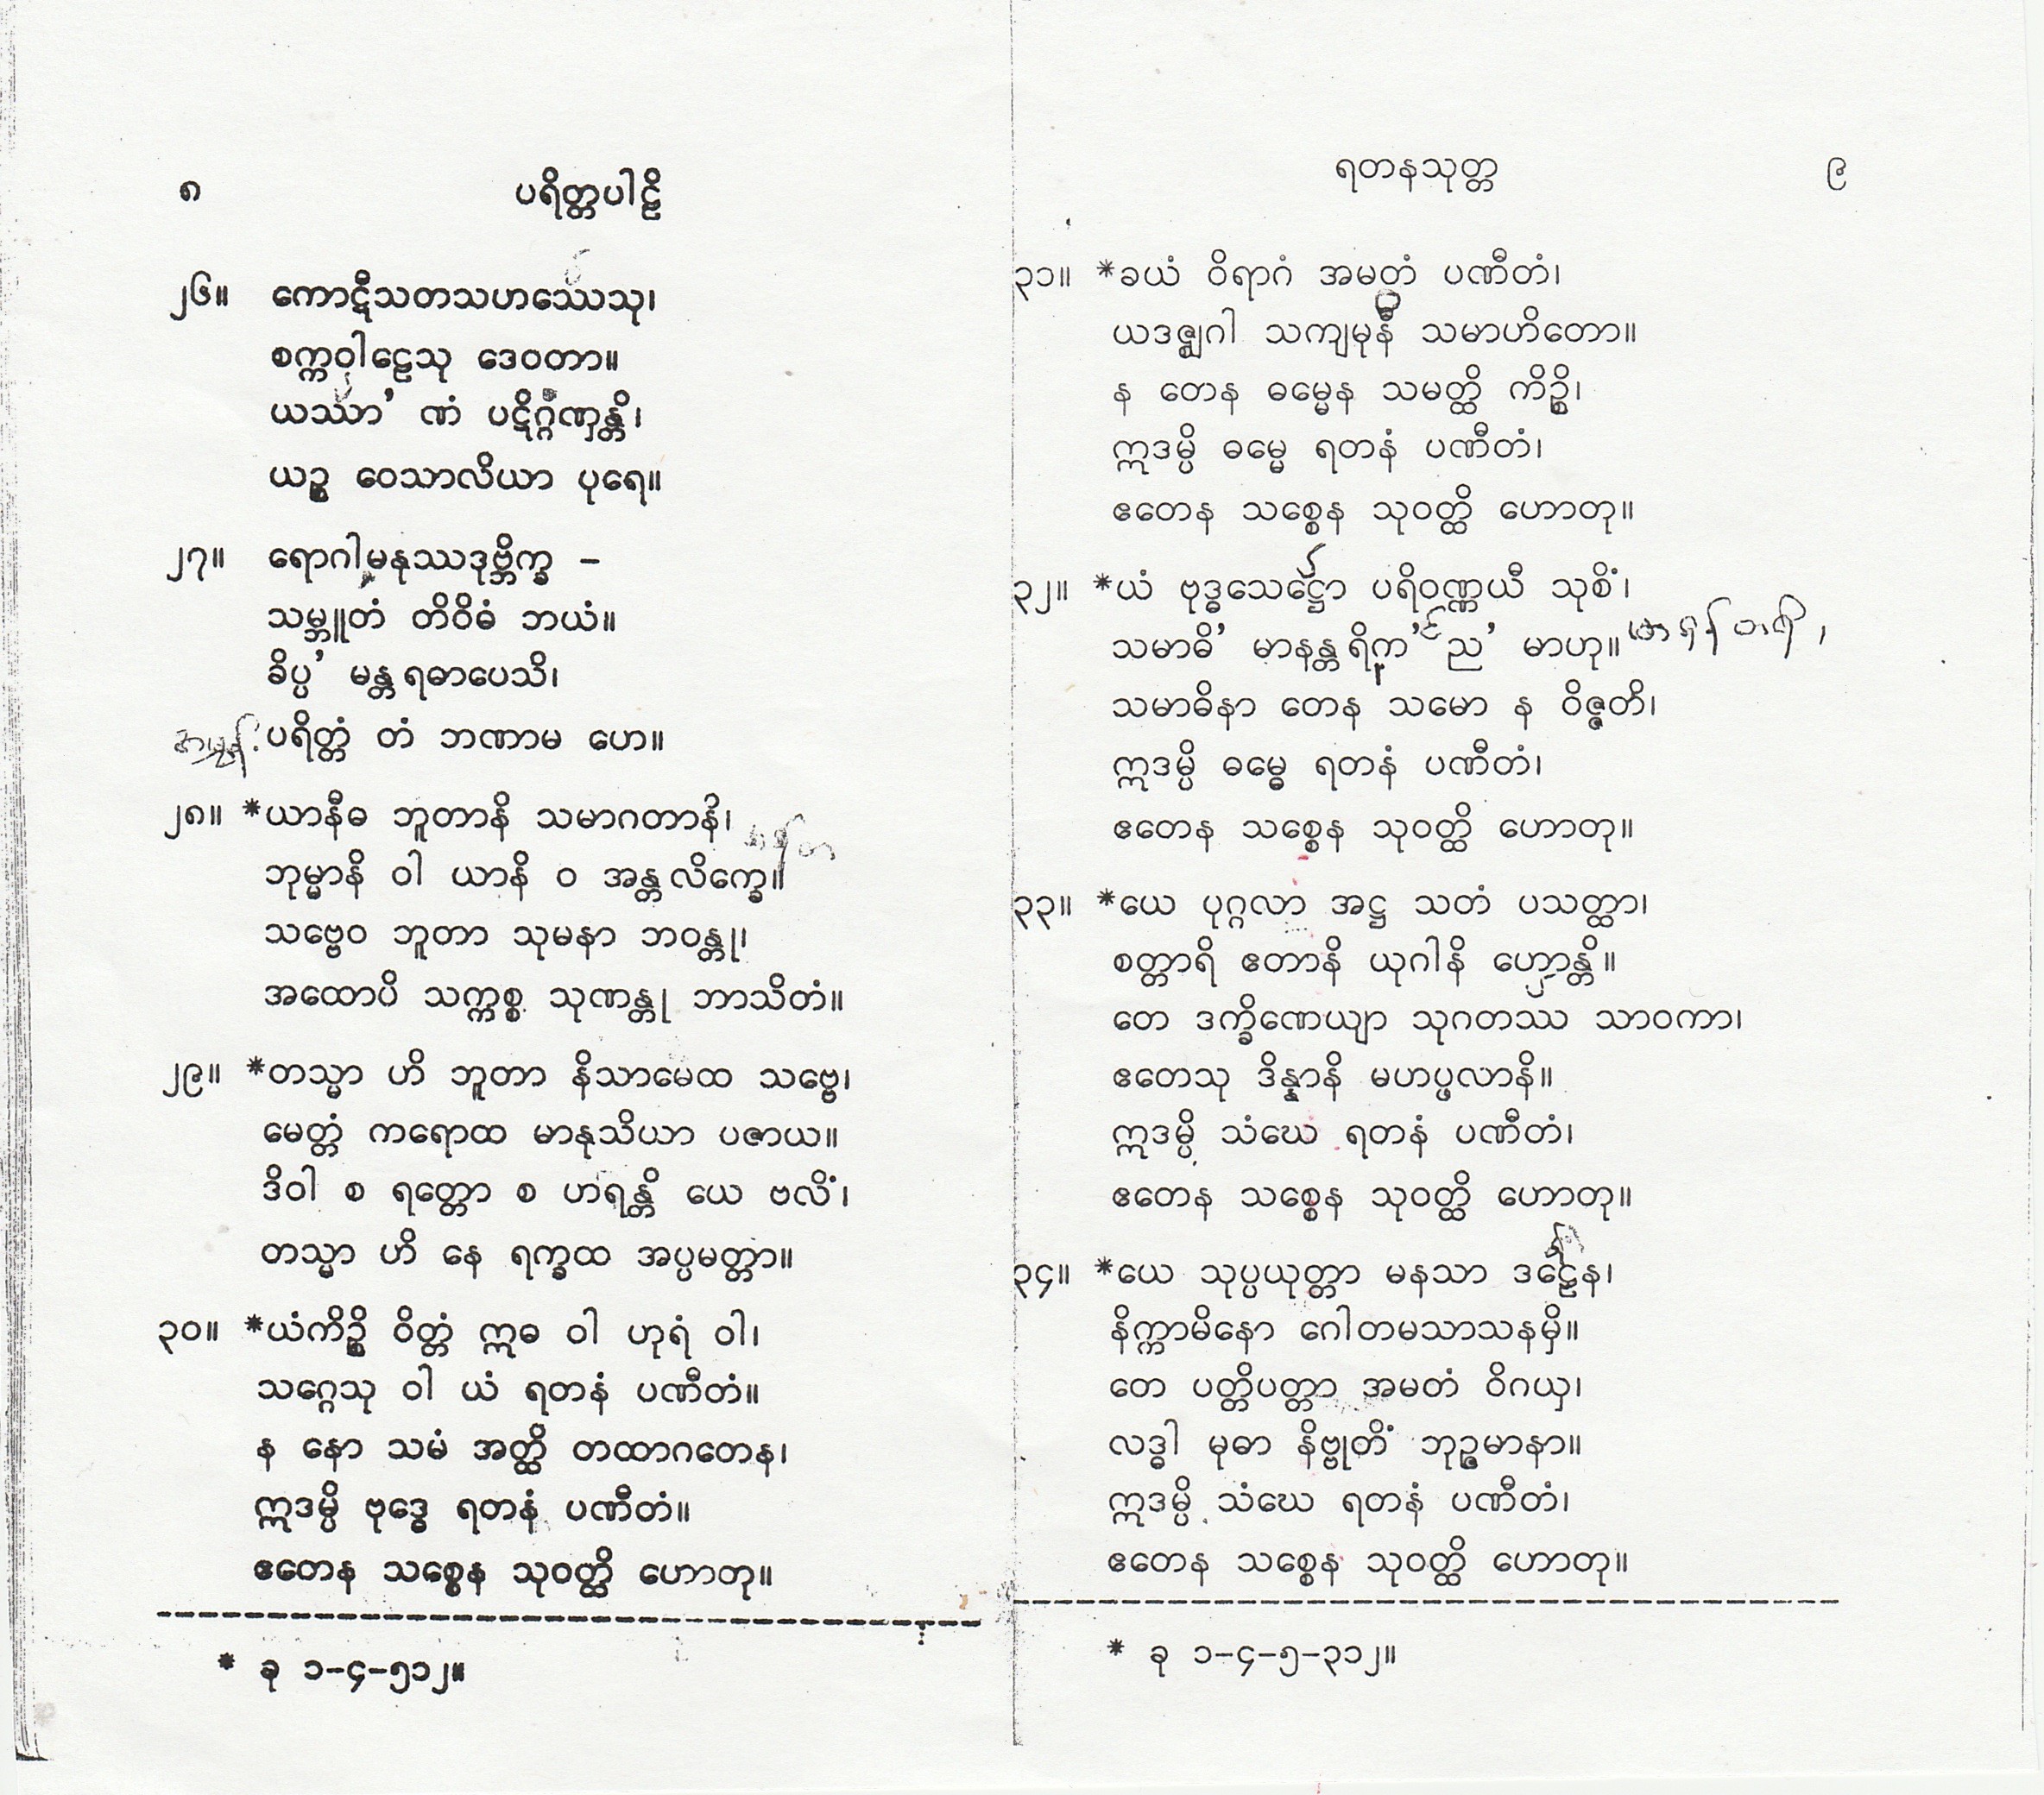 ၈ ပရိတ္တပါဠိ
၂၆။ ကောဋီသတသဟဿေသု၊
စက္ကဝါဠေသု ဒေဝတာ။
ယဿာ’ ဏံ ပဋိဂ္ဂဏှန္တိ၊
ယဉ္စ ဝေသာလိယာ ပုရေ။
၂၇။ ရောဂါမနုဿဒုဗ္ဘိက္ခ –
သမ္ဘူတံ တိဝိဓံ ဘယံ။
ခိပ္ပ’ မန္တရဓာပေသိ၊
ပရိတ္တံ တံ ဘဏာမ ဟေ။
၂၈။ *ယာနီဓ ဘူတာနိ သမာဂတာနိ၊
ဘုမ္မာနိ ဝါ ယာနိ ဝ အန္တလိက္ခေ။
သဗ္ဗေဝ ဘူတာ သုမနာ ဘဝန္တု၊
အထောပိ သက္ကစ္စ သုဏန္တု ဘာသိတံ။
၂၉။ *တသ္မာ ဟိ ဘူတာ နိသာမေထ သဗ္ဗေ၊
မေတ္တံ ကရောထ မာနုသိယာ ပဇာယ။
ဒိဝါ စ ရတ္တော စ ဟရန္တိ ယေ ဗလိံ၊
တသ္မာ ဟိ နေ ရက္ခထ အပ္ပမတ္တာ။
၃၀။ *ယံကိဉ္စိ ဝိတ္တံ ဣဓ ဝါ ဟုရံ ဝါ၊
သဂ္ဂေသု ဝါ ယံ ရတနံ ပဏီတံ။
န နော သမံ အတ္ထိ တထာဂတေန၊
ဣဒမ္ပိ ဗုဒ္ဓေ ရတနံ ပဏီတံ။
ဧတေန သစ္စေန သုဝတ္ထိ ဟောတု။
* ခု ၁–၄–၅၁၂။
ရတနသုတ္တ ၉
၃၁။ *ခယံ ဝိရာဂံ အမတံ ပဏီတံ၊
ယဒဇ္ဈဂါ သကျမုနီ သမာဟိတော။
န တေန ဓမ္မေန သမတ္ထိ ကိဉ္စိ၊
ဣဒမ္ပိ ဓမ္မေ ရတနံ ပဏီတံ၊
ဧတေန သစ္စေန သုဝတ္ထိ ဟောတု။
၃၂။ *ယံ ဗုဒ္ဓသေဋ္ဌော ပရိဝဏ္ဏယီ သုစိံ၊
သမာဓိ’ မာနန္တရိက’ ည’ မာဟု။
သမာဓိနာ တေန သမော န ဝိဇ္ဇတိ၊
ဣဒမ္ပိ ဓမ္မေ ရတနံ ပဏီတံ၊
ဧတေန သစ္စေန သုဝတ္ထိ ဟောတု။
၃၃။ *ယေ ပုဂ္ဂလာ အဋ္ဌ သတံ ပသတ္ထာ၊
စတ္တာရိ ဧတာနိ ယုဂါနိ ဟောန္တိ။
တေ ဒက္ခိဏေယျာ သုဂတဿ သာဝကာ၊
ဧတေသု ဒိန္နာနိ မဟပ္ဖလာနိ။
ဣဒမ္ပိ သံဃေ ရတနံ ပဏီတံ၊
ဧတေန သစ္စေန သုဝတ္ထိ ဟောတု။
၃၄။ *ယေ သုပ္ပယုတ္တာ မနသာ ဒဠှေန၊
နိက္ကာမိနော ဂေါတမသာသနမှိ။
တေ ပတ္တိပတ္တာ အမတံ ဝိဂယှ၊
လဒ္ဓါ မုဓာ နိဗ္ဗုတိံ ဘုဉ္ဇမာနာ။
ဣဒမ္ပိ သံဃေ ရတနံ ပဏီတံ၊
ဧတေန သစ္စေန သုဝတ္ထိ ဟောတု။
* ခု ၁–၄–၅–၃၁၂။